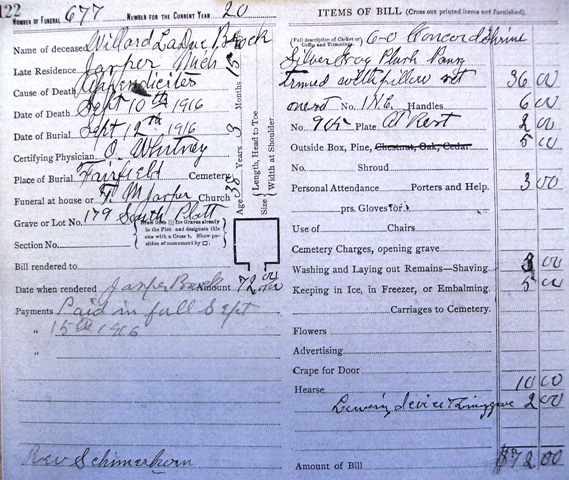 122
NUMBER OF FUNERAL 677 NUMBER FOR THE CURRENT YEAR 20
Name of deceased Willard LaDue
Late Residence Jasper Mich
Cause of Death Appendicites
Date of Death Sept 10th 1916
Date of Burial Sept 12th 1916
Certifying Physician O Whitney
Place of Burial Fairfield Cemetery
Funeral at house or F. M Jasper Church
Grave or Lot No. 179 South Platt
(Mark from for Graves already in the Plot and designate this one with a Cross †. Show position of monument by □.)
Section No.
Age 38 Years 3 Months 15
Size { Length, Head to Toe
Width at Shoulder
Bill rendered to
Date when rendered Jasper Amount 72 00
Payments Paid in full Sept
" 15th 1916
"
Rev Schimerhorn
ITEMS OF BILL (Cross out printed items not furnished).
(Full description of Casket or Coffin and Trimmings) 6-0 Concord Shrine
Silver Gray Plush
Lined with pillow set 36 00
No. 1 N.E. Handles 6 00
No. 905 Plate At Rest 2 00
Outside Box, Pine, Chestnut, Oak, Cedar 5 00
No. Shroud
Personal Attendance Porters and Help. 3 00
prs. Gloves for
Use of Chairs
Cemetery Charges, opening grave
Washing and Laying out Remains—Shaving 3 00
Keeping in Ice, in Freezer, or Embalming. 5 00
Carriages to Cemetery.
Flowers
Advertising
Crape for Door
Hearse 10 00
Lowering device 2 00
Amount of Bill $72 00